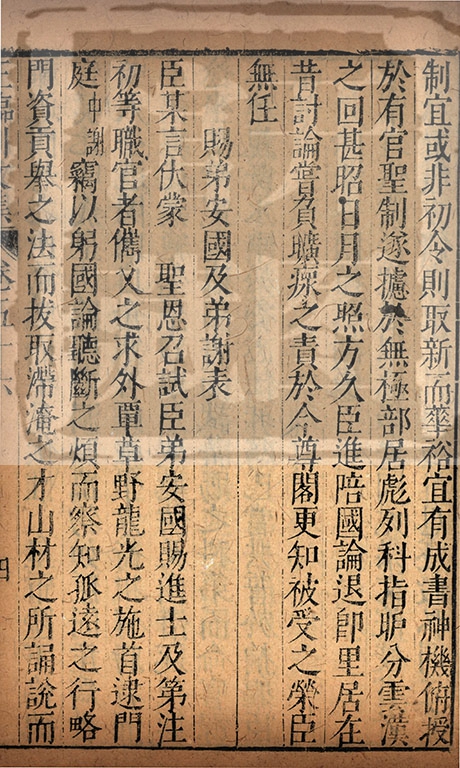 制宜或非初令則取新而華裕宜有成書神機俯授
於有官聖制遂據於無極部居彪列科指昈分雲漢
之回甚昭日月之照方久臣進陪國論退卽里居在
昔討論嘗負曠瘝之責於今尊閣更知被受之榮臣
無任
賜弟安國及弟謝表
臣某言伏蒙　聖恩召試臣弟安國賜進士及第注
初等職官者儁乂之求外單草野龍光之施首逮門
庭中謝竊以躬國論聽斷之煩而察知孤遠之行略
門資貢舉之法而拔取滯淹之才山材之所誦說而
王臨川文集　卷五十六　四